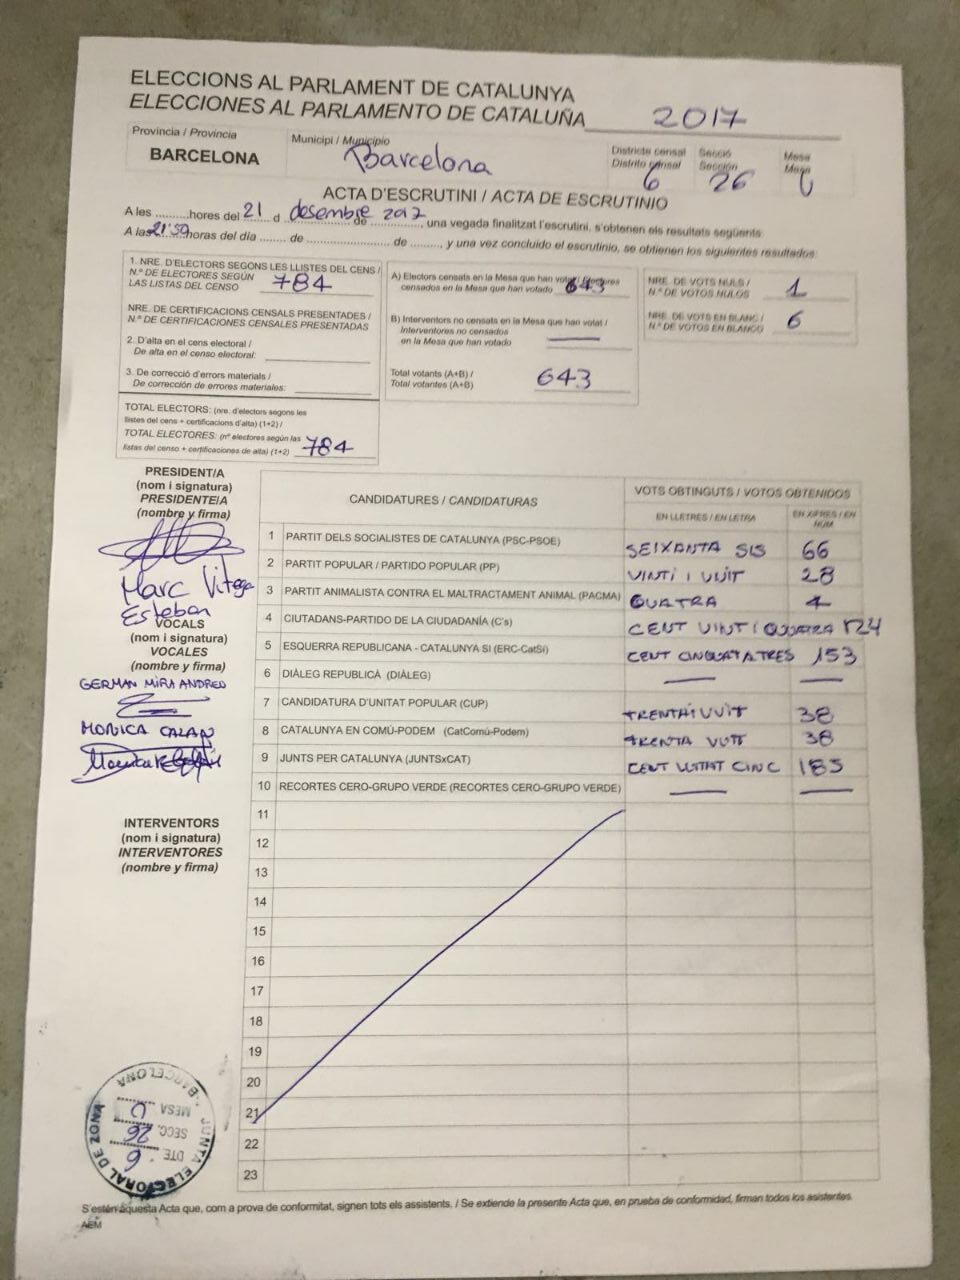 ELECCIONS AL PARLAMENT DE CATALUNYA
ELECCIONES AL PARLAMENTO DE CATALUÑA 2017
Provincia / Provincia
BARCELONA
Municipi / Municipio
Barcelona
Districte censal
Distrito censal
6
Secció
Sección
26
Mesa
Mesa
U
ACTA D'ESCRUTINI / ACTA DE ESCRUTINIO
A les ..........hores del 21 d desembre de 2017, una vegada finalitzat l'escrutini, s'obtenen els resultats següents:
A las 21'50 horas del día ....... de ...................... de ........, y una vez concluido el escrutinio, se obtienen los siguientes resultados:
1. NRE. D'ELECTORS SEGONS LES LLISTES DEL CENS /
N.º DE ELECTORES SEGÚN
LAS LISTAS DEL CENSO 784
NRE. DE CERTIFICACIONS CENSALS PRESENTADES /
N.º DE CERTIFICACIONES CENSALES PRESENTADAS
2. D'alta en el cens electoral /
De alta en el censo electoral:
3. De correcció d'errors materials /
De corrección de errores materiales:
TOTAL ELECTORS: (nre. d'electors segons les
llistes del cens + certificacions d'alta) (1+2) /
TOTAL ELECTORES: (nº electores según las
listas del censo + certificaciones de alta) (1+2) 784
A) Electors censats en la Mesa que han votat / Electores
censados en la Mesa que han votado 643
B) Interventors no censats en la Mesa que han votat /
Interventores no censados
en la Mesa que han votado —
Total votants (A+B) /
Total votantes (A+B) 643
NRE. DE VOTS NULS /
N.º DE VOTOS NULOS 1
NRE. DE VOTS EN BLANC /
N.º DE VOTOS EN BLANCO 6
PRESIDENT/A
(nom i signatura)
PRESIDENTE/A
(nombre y firma)
Marc Vitega
Esteban
VOCALS
(nom i signatura)
VOCALES
(nombre y firma)
GERMAN MIRA ANDREU
MONICA
INTERVENTORS
(nom i signatura)
INTERVENTORES
(nombre y firma)
CANDIDATURES / CANDIDATURAS
VOTS OBTINGUTS / VOTOS OBTENIDOS
EN LLETRES / EN LETRA
EN XIFRES / EN NÚM
1 PARTIT DELS SOCIALISTES DE CATALUNYA (PSC-PSOE) SEIXANTA SIS 66
2 PARTIT POPULAR / PARTIDO POPULAR (PP) VINTI I VUIT 28
3 PARTIT ANIMALISTA CONTRA EL MALTRACTAMENT ANIMAL (PACMA) QUATRA 4
4 CIUTADANS-PARTIDO DE LA CIUDADANÍA (C's) CENT VINT I QUATRA 124
5 ESQUERRA REPUBLICANA - CATALUNYA SI (ERC-CatSí) CENT CINQUATA TRES 153
6 DIÀLEG REPUBLICÀ (DIÀLEG) — —
7 CANDIDATURA D'UNITAT POPULAR (CUP) TRENTA I VUIT 38
8 CATALUNYA EN COMÚ-PODEM (CatComú-Podem) TRENTA VUIT 38
9 JUNTS PER CATALUNYA (JUNTSxCAT) CENT VUITAT CINC 185
10 RECORTES CERO-GRUPO VERDE (RECORTES CERO-GRUPO VERDE) — —
11
12
13
14
15
16
17
18
19
20
21
22
23
JUNTA ELECTORAL DE ZONA
BARCELONA
DTE. 6
SECC. 26
MESA U
S'estén aquesta Acta que, com a prova de conformitat, signen tots els assistents. / Se extiende la presente Acta que, en prueba de conformidad, firman todos los asistentes.
AEM